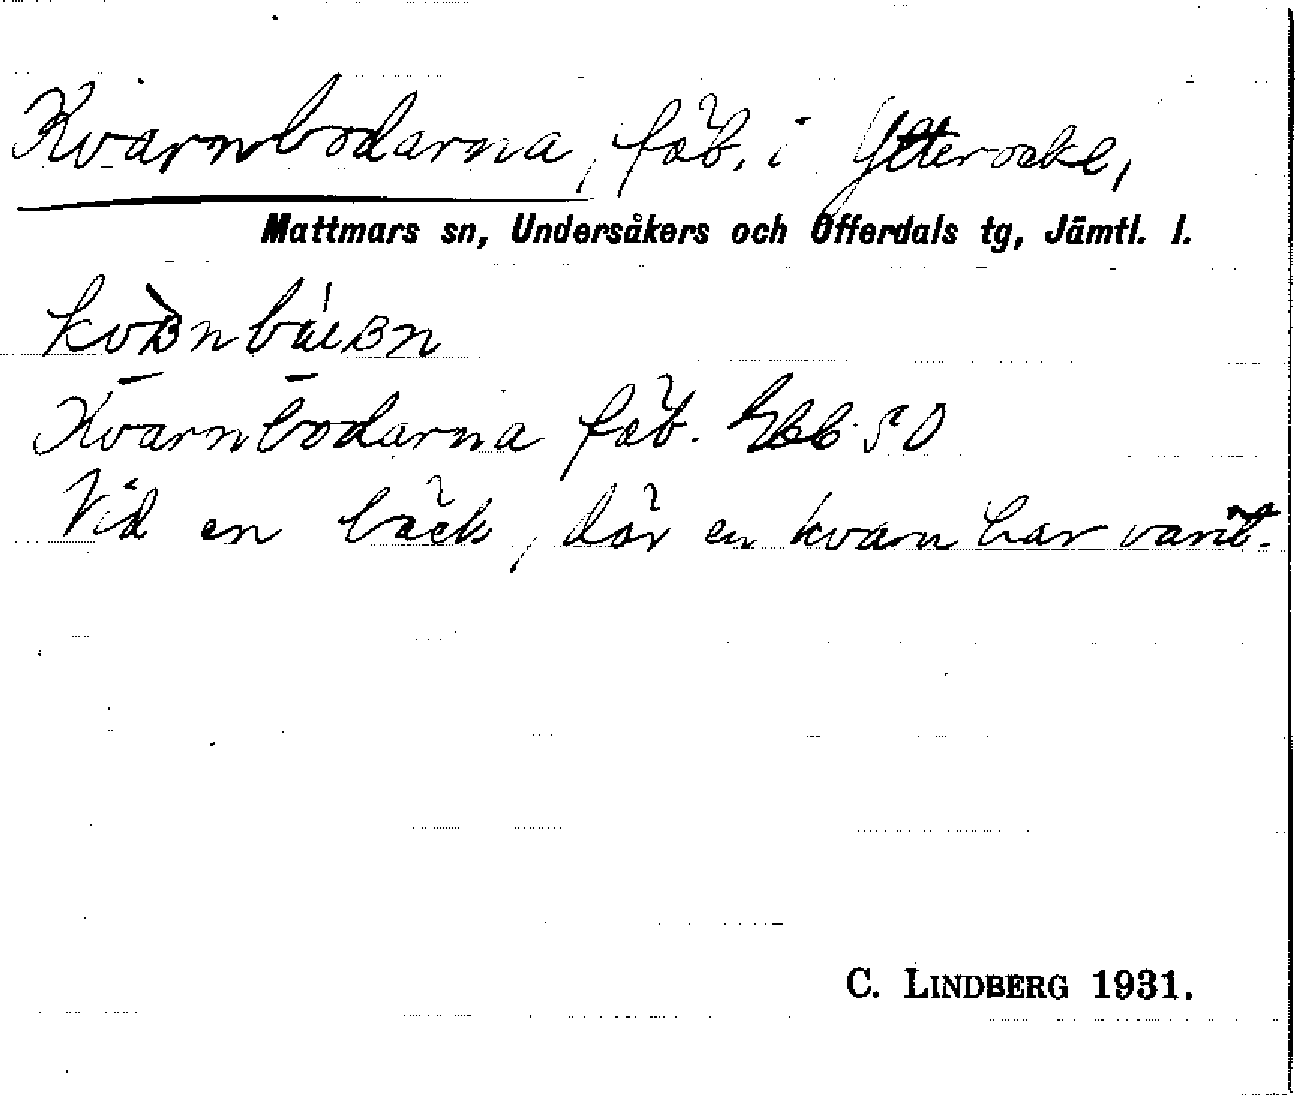 Kvarnbodarna, fäb. i Ytterocke,
Mattmars sn, Undersåkers och Offerdals tg, Jämtl. l.
Kvarnbodarna fäb. Gbb. 50
Vid en bäck, där en kvarn har varit.
C. LINDBERG 1931.